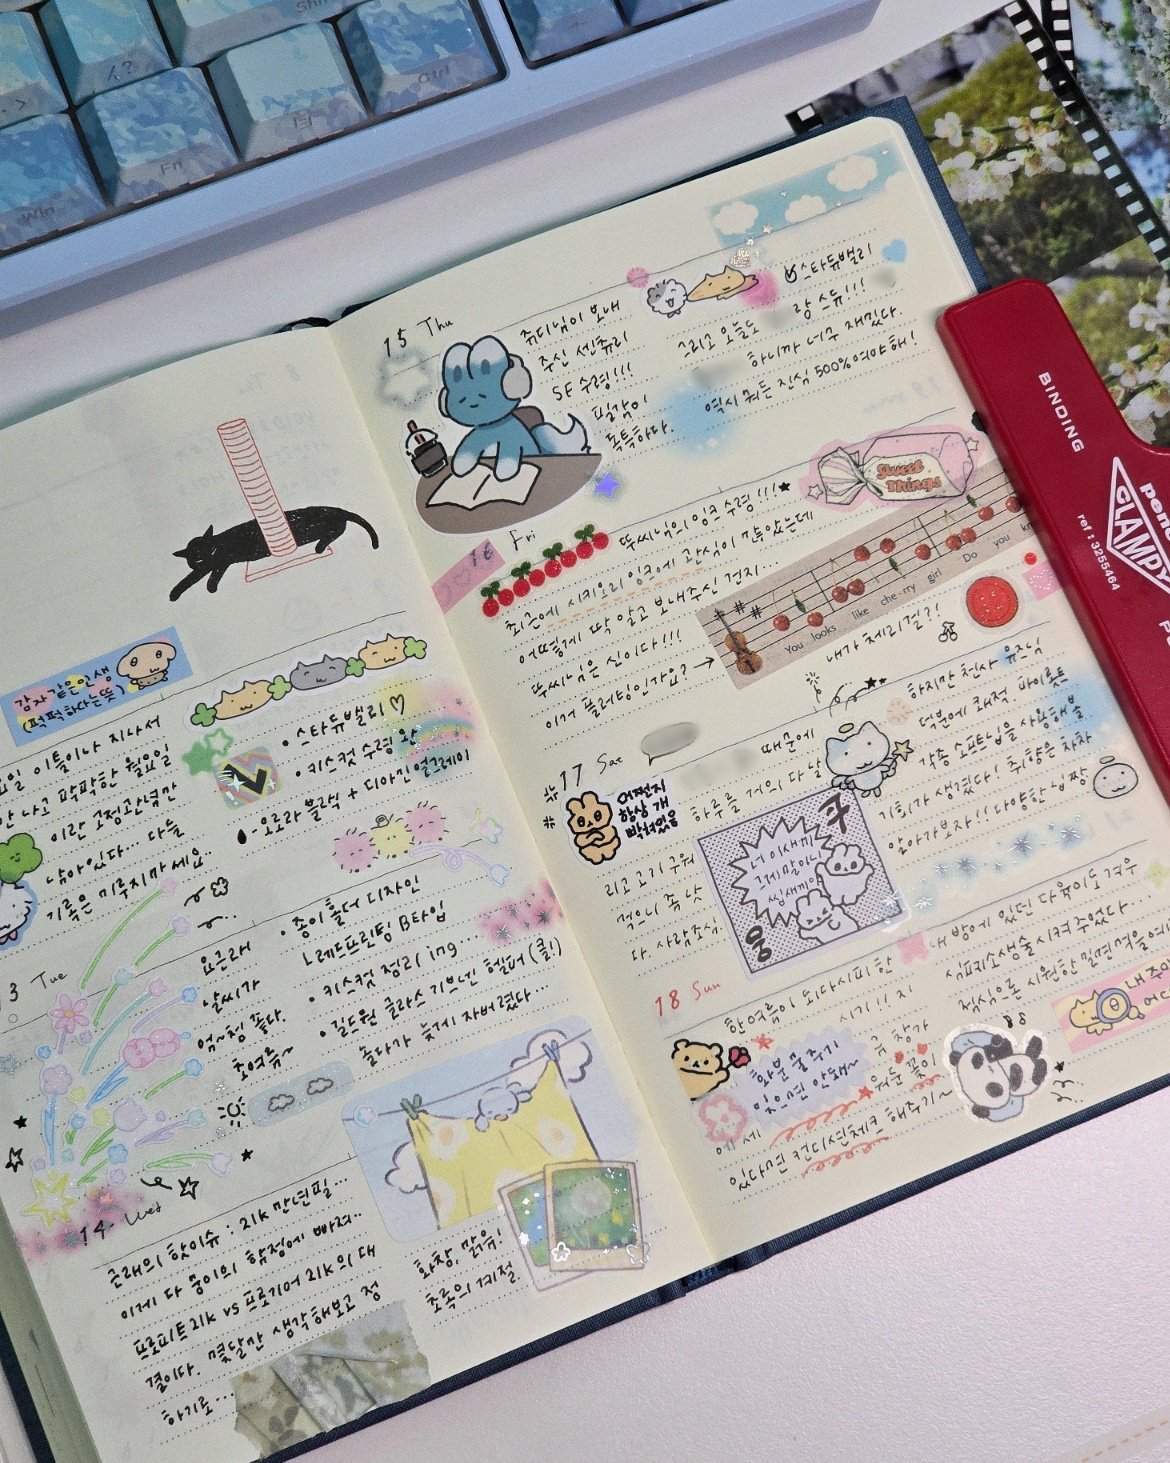 Win
Fn
Ctrl
감자 같은 인생
(퍽퍽하다는 뜻)
이틀이나 지나서
안 나고 팍팍한 월요일
이란 고정관념만
남아있다... 다들
기록은 미루지 마세요..
• 스타듀밸리 ♡
• 키스컷 수령 완
- 오로라 블랙 + 디아민 얼그레이
3 Tue
요근래
날씨가
엄~청 좋다.
초여름~
• 종이 홀더 디자인
레드프린팅 B타입
• 키스컷 정리 ing...
• 길드원 클라스 기브넨 헬퍼 (퀼!)
놀다가 늦게 자버렸다...
14 Wed
근래의 핫이슈 : 21K 만년필...
이게 다 뭉이의 함정에 빠져..
프로피트 21K vs 프로기어 21K의 대
결이다. 몇달만 생각해보고 정
하기로...
화창, 맑음!
초록의 계절.
15 Thu
쥬디님이 보내
주신 센츄리
SE 수령!!!
필감이
톡톡하다.
스타듀밸리
그리고 오늘도
랑 스듀!!!
하니까 너무 재밌다.
역시 뭐든 진심 500%여야 해!
Sweet Things
16 Fri
뚜씨님의 잉크 수령!!!★
최근에 시키오리 잉크에 관심이 간두았는데
어떻게 딱 알고 보내주신 건지...
뚜씨님은 신이다!!!
이거 플러팅인가요? →
You looks like che-rry girl Do you kn
내가 체리걸?!
17 Sat
때문에
어쩐지
항상 개
빡쳐있음
하루를 거의 다 날
리고 고기 구워
먹으니 좀 낫
다. 사람소심.
너 이새끼
그게 말이니
씹새끼야
하지만 천사 유즈님
덕분에 쾌적 파이로트
각종 소프트닙을 사용해볼
기회가 생겼다! 취향은 차차
알아가보자!!! 다양한 닙 짱
18 Sun
한여름이 되다시피 한
시기!! 지
화분 물주기
잊으면 안돼~
금 창가
에 세
워둔 꽃이
있다면 컨디션체크 해주기~
내 방에 있던 다육이도 겨우
심폐소생술 시켜주었다...
점심으로 시원한 밀면 먹을 예
내 주머
어디
BINDING
CLAMPY
ref : 3255464